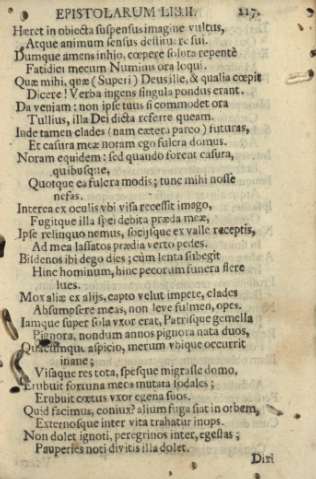 EPISTOLARUM LIB. II. 217.
Heret in obiecta suspensus imagine vultus,
Atque animum sensus destituere sui.
Dumque amens inhio, cœpere soluta repentè
Fatidici mecum Numinu ora loqui.
Quæ mihi, quæ (Superi) Deus ille, & qualia cœpit
Dicere! Verba ingens singula pondus erant.
Da veniam: non ipse tuus si commodet ora
Tullius, illa Dei dicta referre queam.
Inde tamen clades (nam cætera parco) futuras,
Et casura meæ noram ego fulcra domus.
Noram equidem: sed quando forent casura,
quibusque,
Quotque ea fulcra modis; tunc mihi nosse
nefas.
Interea ex oculis vbi visa recessit imago,
Fugitque illa spei debita præda meæ,
Ipse relinquo nemus, socijsque ex valle receptis,
Ad mea lassatos prædia verto pedes.
Bisdenos ibi dego dies; cùm lenta subegit
Hinc hominum, hinc pecorum funera flere
lues.
Mox aliæ ex alijs, capto velut impete, clades
Absumpsere meas, non leve fulmen, opes.
Iamque super sola vxor erat, Patrisque gemella
Pignora, nondum annos pignora nata duos,
Quacumque aspicio, merum vbique occurrit
inane;
Visaque res tota, spesque migrasse domo.
Erubuit fortuna mecs mutata sodales;
Erubuit cœtus vxor egena suos.
Quid facimus, coniux? alium fuga fiat in orbem,
Externosque inter vita trahatur inops.
Non dolet ignoti, peregrinos inter, egestas;
Pauperies noti divitis illa dolet.
Dixi